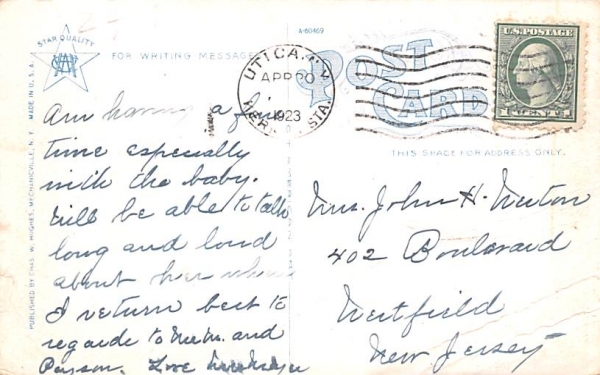 STAR QUALITY
MADE IN U.S.A.
FOR WRITING MESSAGE
PUBLISHED BY CHAS. W. HUGHES, MECHANICVILLE, N.Y.
Am having a fine
time especially
with the baby.
Will be able to talk
long and loud
about her when
I return best
regards to and
Love
A-80469
UTICA, N.Y.
APR 20
1923
STA.
POST
CARD
U.S. POSTAGE
1 CENT 1
THIS SPACE FOR ADDRESS ONLY.
Mrs. John H. Newton
402 Boulevard
Westfield
New Jersey